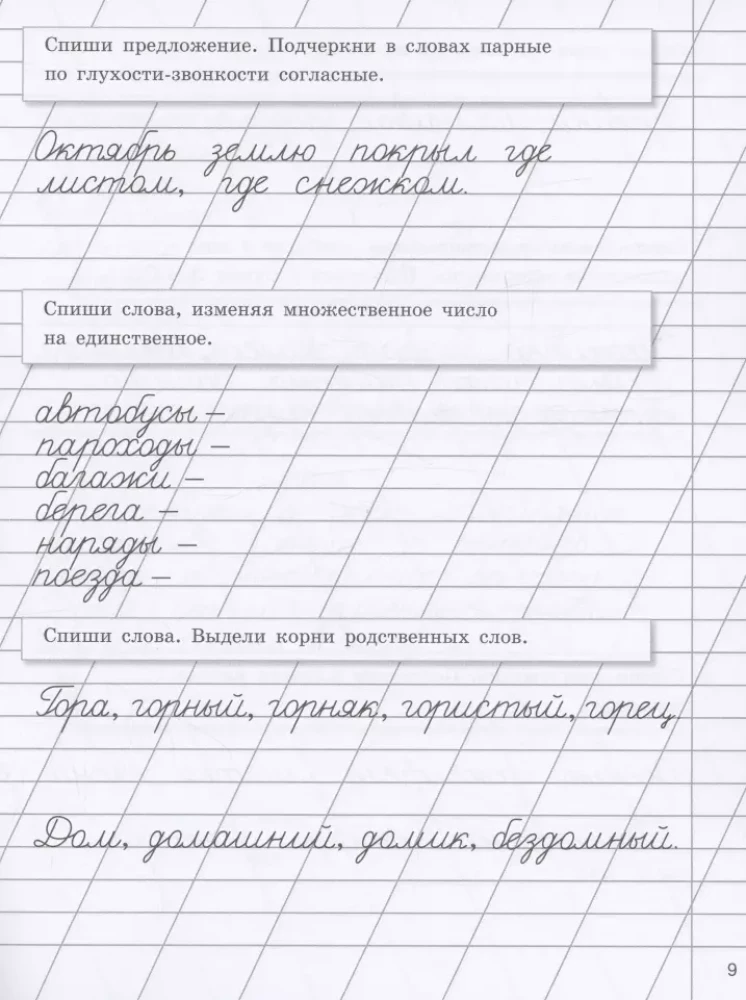 Спиши предложение. Подчеркни в словах парные
по глухости-звонкости согласные.
Октябрь землю покрыл где
листом, где снежком.
Спиши слова, изменяя множественное число
на единственное.
автобусы –
пароходы –
багажи –
берега –
наряды –
поезда –
Спиши слова. Выдели корни родственных слов.
Гора, горный, горняк, гористый, горец
Дом, домашний, домик, бездомный.
9